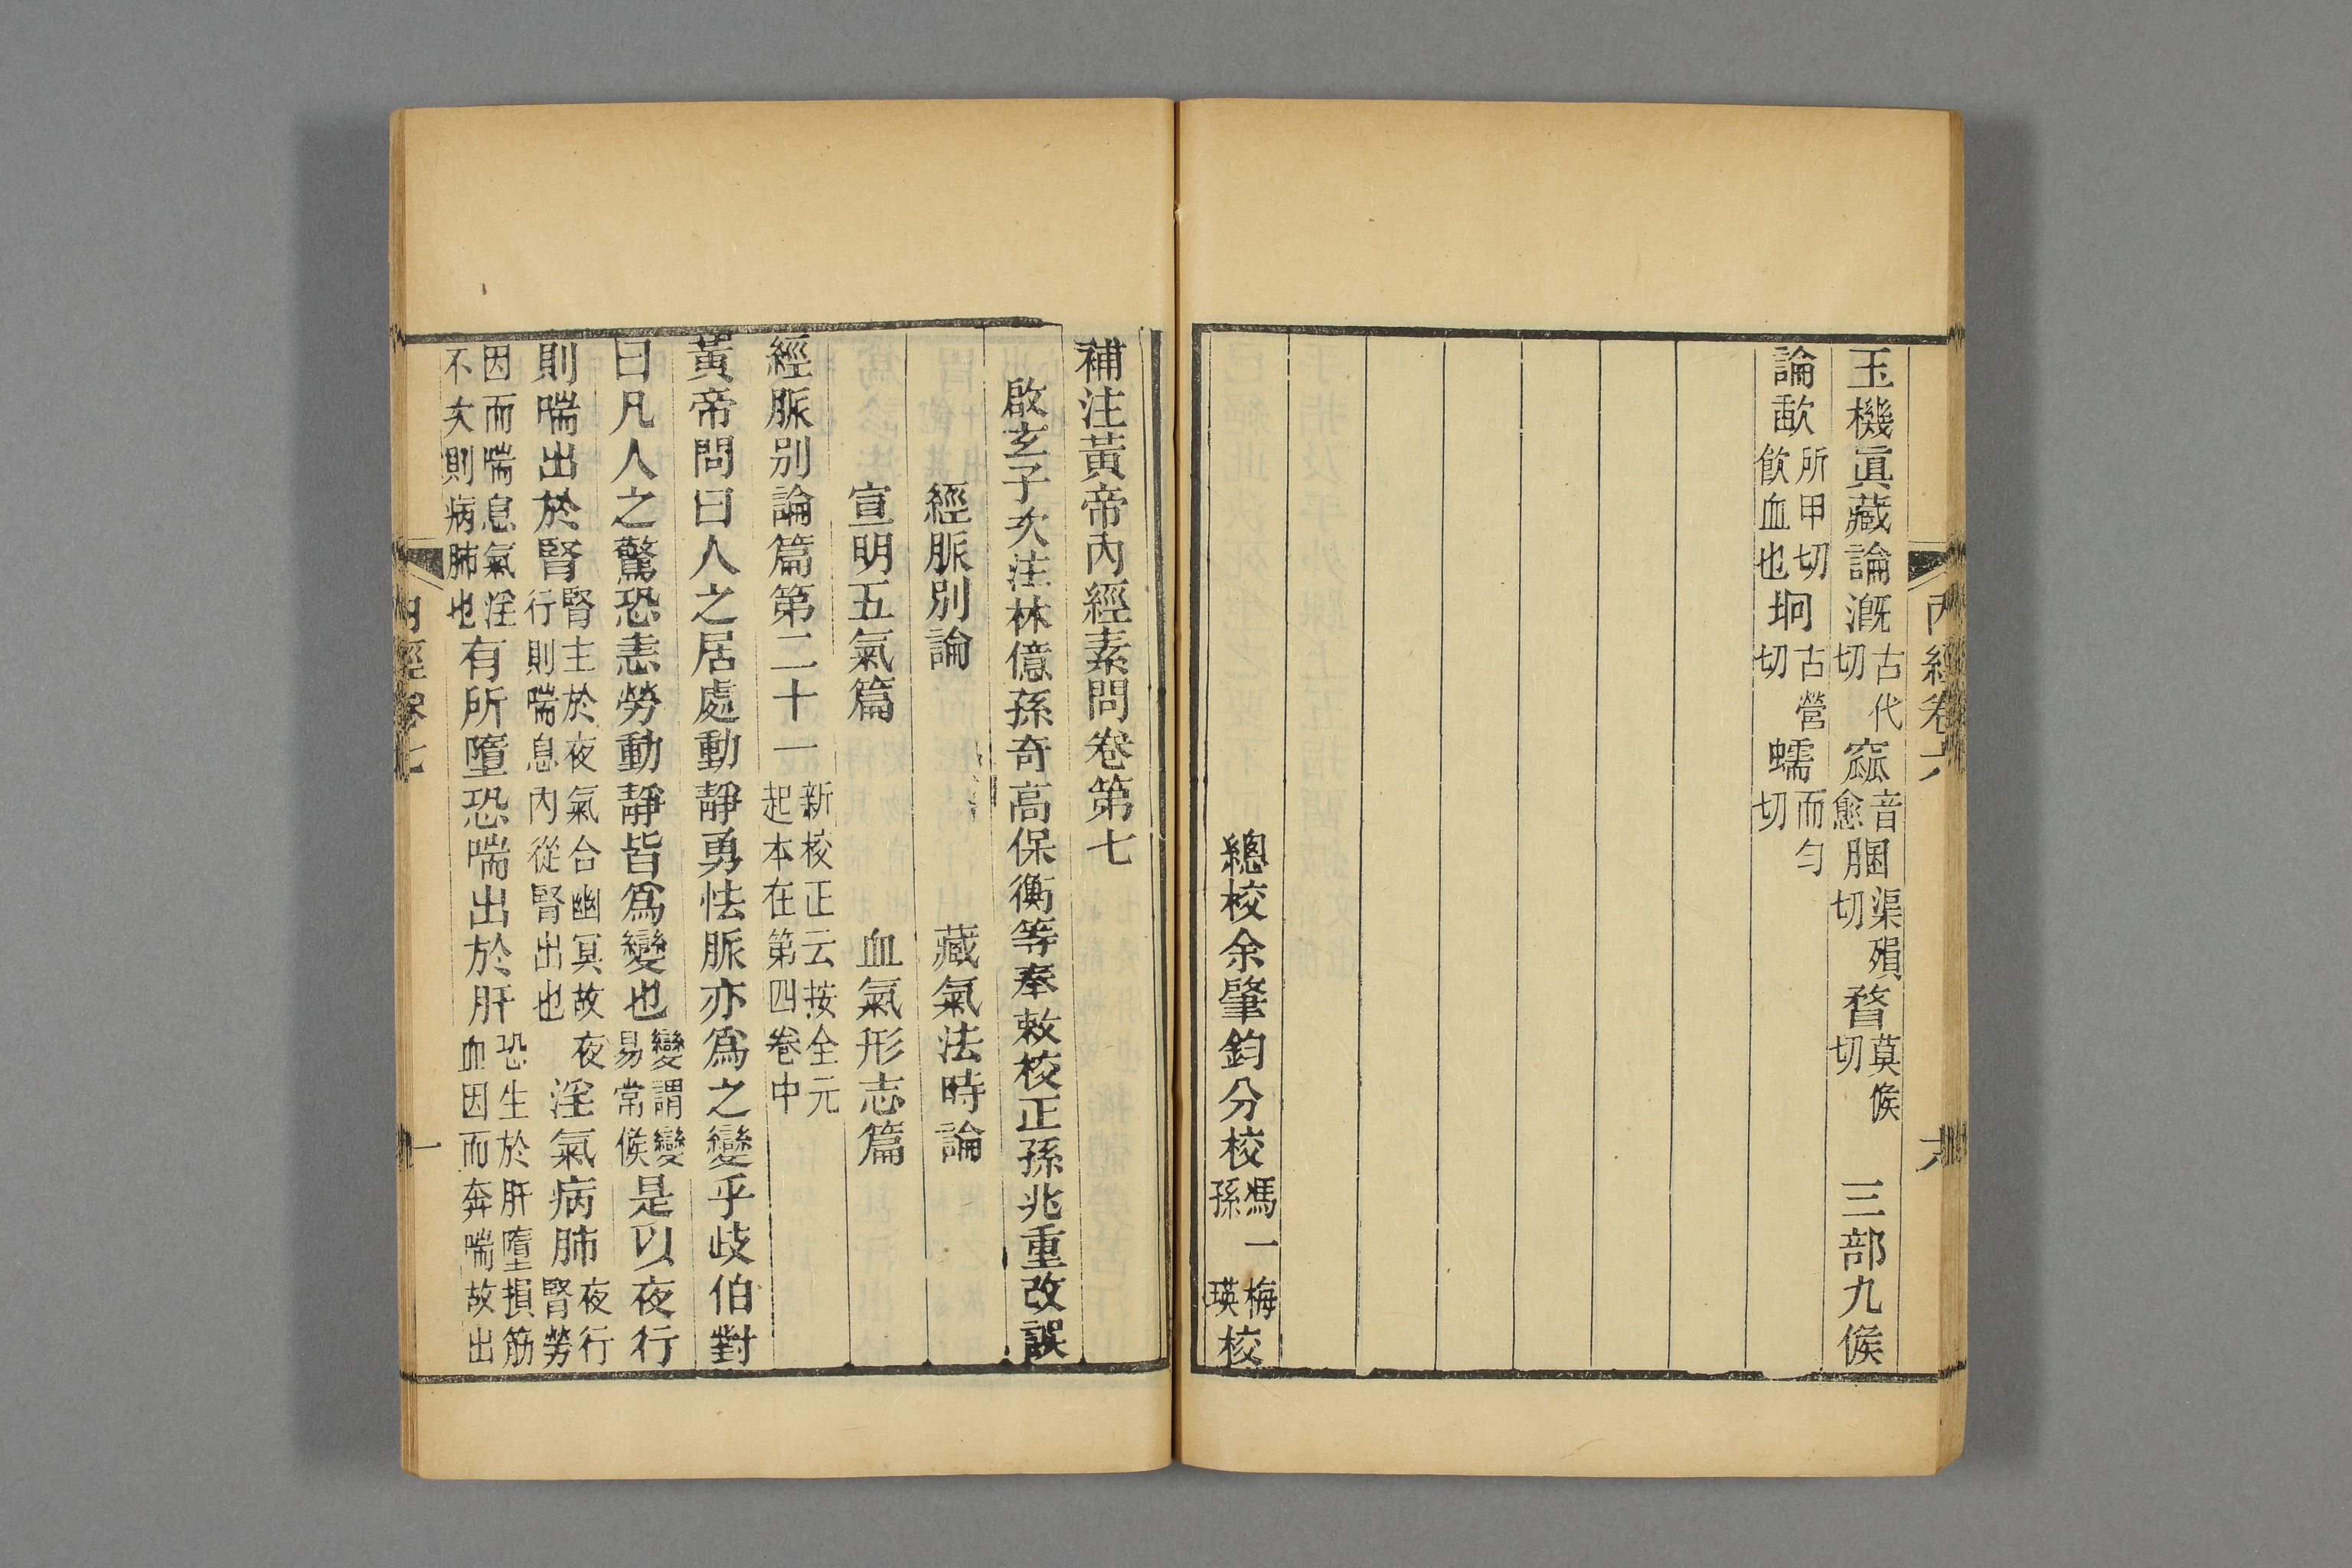 玉機眞藏論漑古代切窳音愈䐃渠殞切瞀莫候切　三部九候
論歃所甲切飲血也坰古營切蠕而勻切
總校余肇鈞分校馮一梅孫瑛校
內經卷六　六
補注黃帝內經素問卷第七
啟玄子次注林億孫奇高保衡等奉敕校正孫兆重改誤
經脈別論　藏氣法時論
宣明五氣篇　血氣形志篇
經脈別論篇第二十一新校正云按全元起本在第四卷中
黃帝問曰人之居處動靜勇怯脈亦爲之變乎歧伯對
曰凡人之驚恐恚勞動靜皆爲變也變謂變易常候是以夜行
則喘出於腎腎主於夜氣合幽冥故夜行則喘息內從腎出也淫氣病肺夜行腎勞
因而喘息氣淫不次則病肺也有所墮恐喘出於肝恐生於肝墮損筋血因而奔喘故出
內經卷七　一